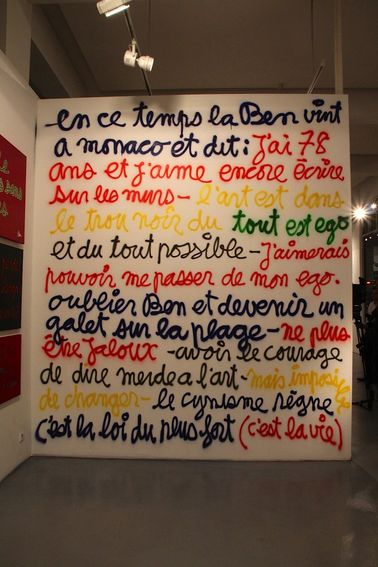 en ce temps la Ben vint
a monaco et dit: j'ai 78
ans et j'aime encore écrire
sur les murs - l'art est dans
le trou noir du tout est ego
et du tout possible - j'aimerais
pouvoir me passer de mon ego.
oublier Ben et devenir un
galet sur la plage - ne plus
être jaloux - avoir le courage
de dire merde a l'art - mais impossible
de changer - le cynisme règne
c'est la loi du plus fort (c'est la vie)